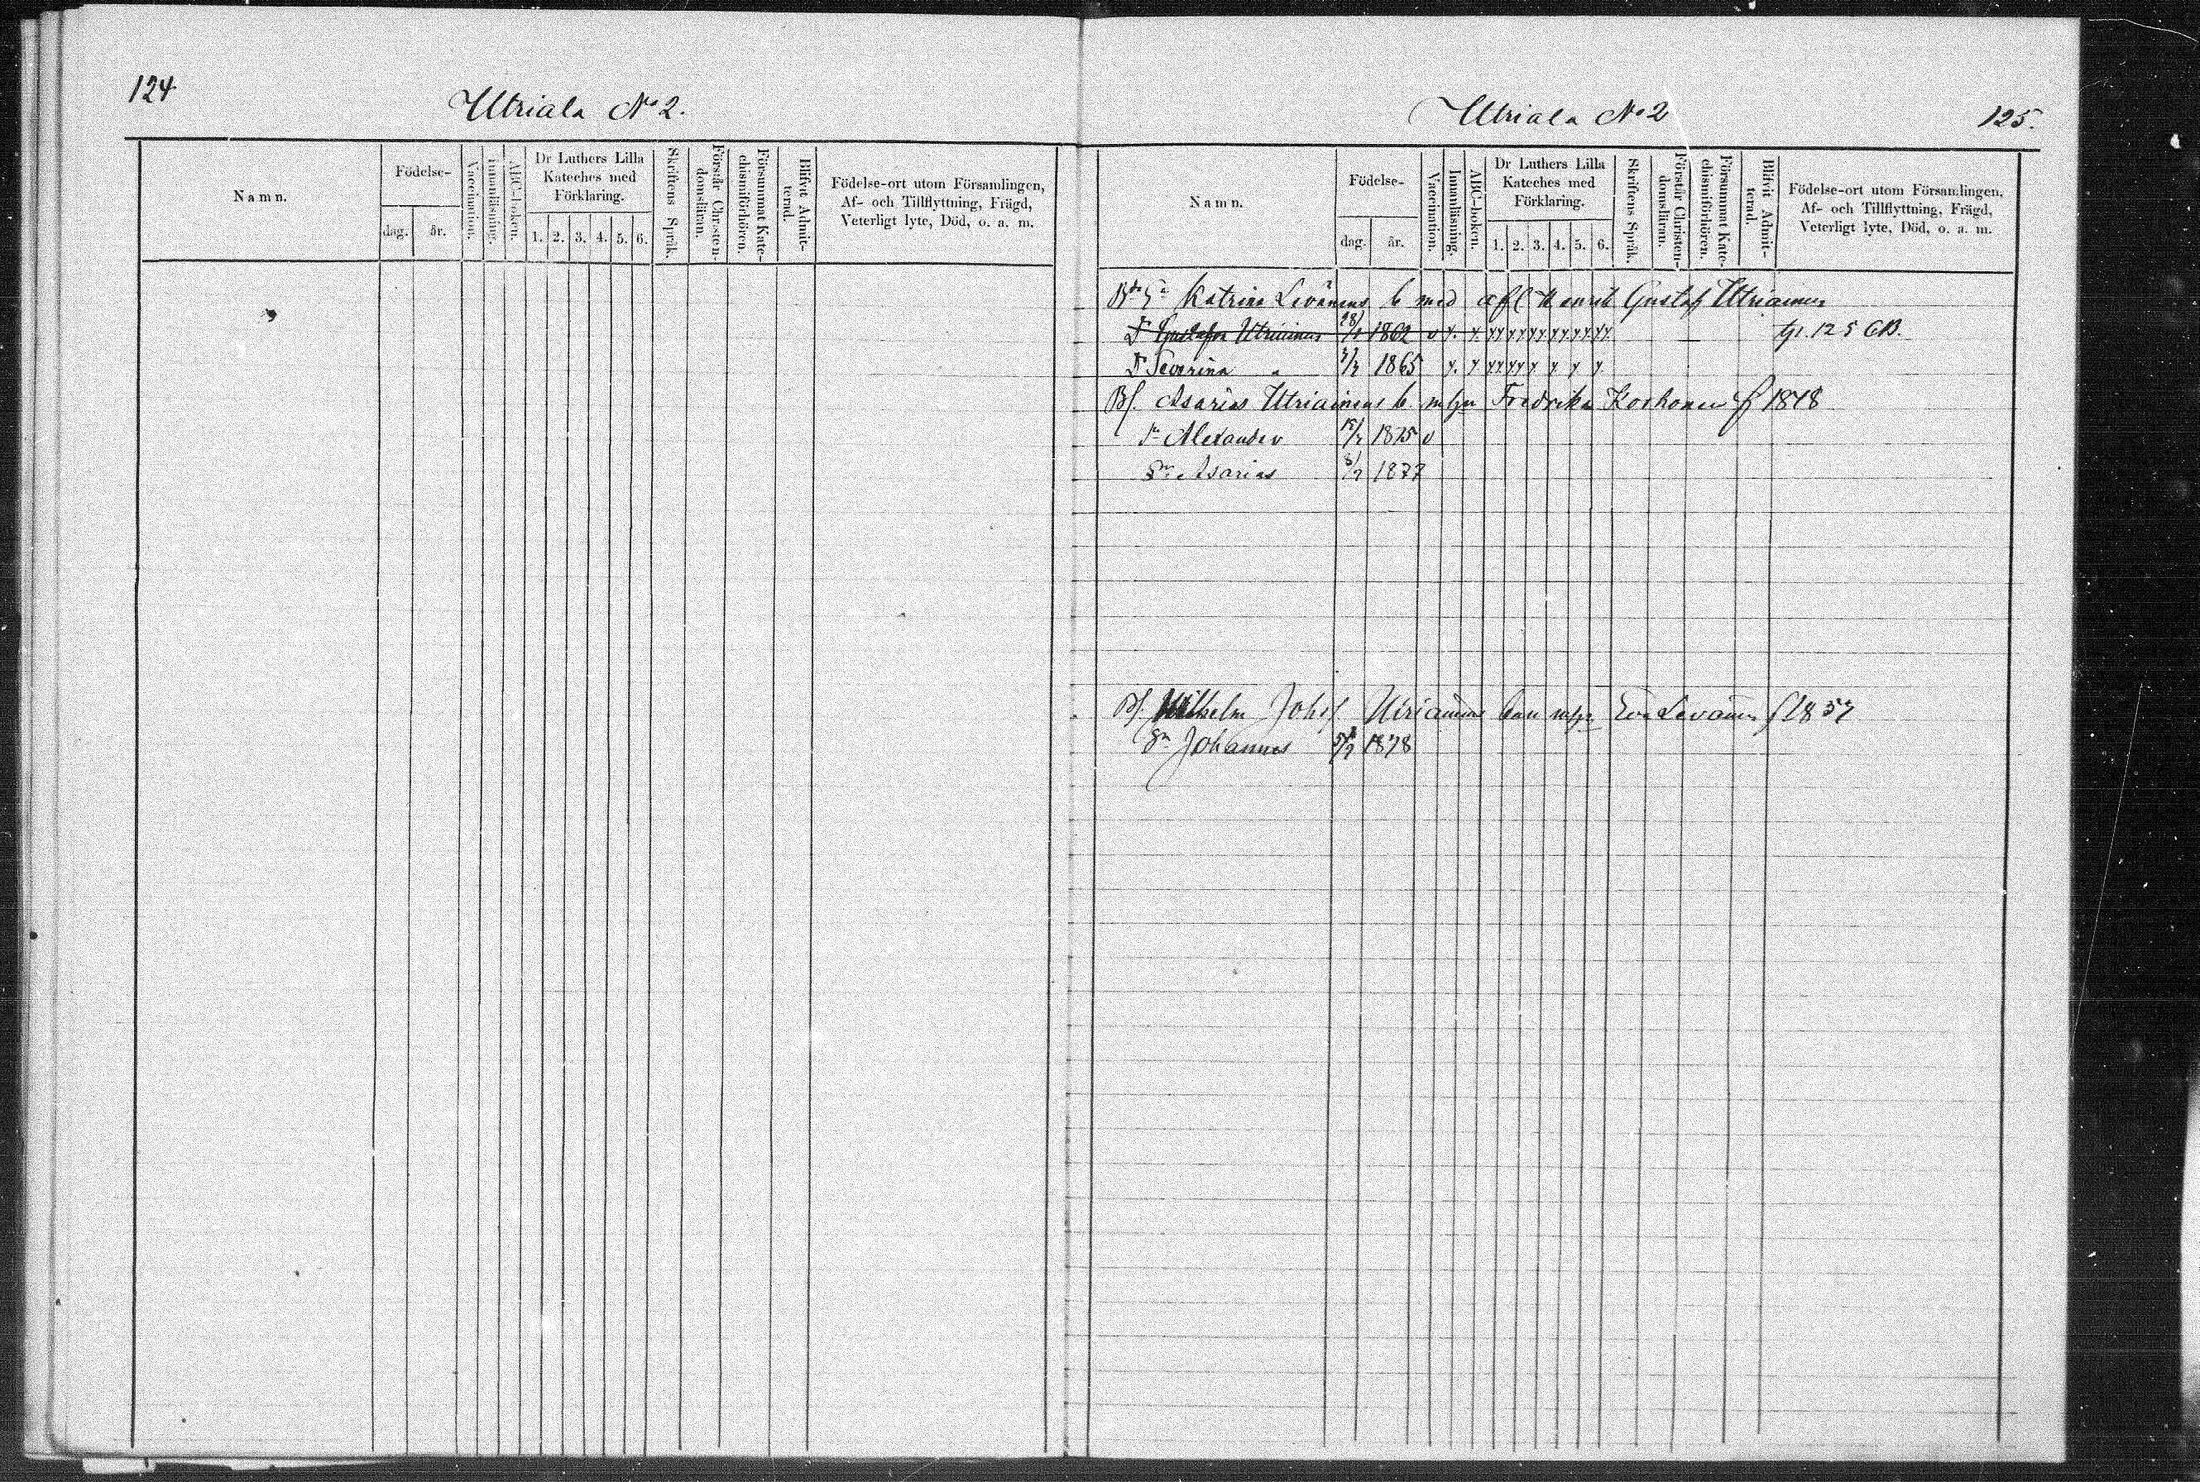 124
Utriala No 2.
Namn.
Födelse-
dag. år.
Vaccination.
Innanläsning.
ABC-boken.
Dr Luthers Lilla Kateches med Förklaring.
1. 2. 3. 4. 5. 6.
Skriftens Språk.
Förstår Christen-domsläran.
Försummat Kate-chismiförhören.
Blifvit Admit-terad.
Födelse-ort utom Församlingen,
Af- och Tillflyttning, Frägd,
Veterligt lyte, Död, o. a. m.
Utriala No 2
125.
Namn.
Födelse-
dag. år.
Vaccination.
Innanläsning.
ABC-boken.
Dr Luthers Lilla Kateches med Förklaring.
1. 2. 3. 4. 5. 6.
Skriftens Språk.
Förstår Christen-domsläran.
Försummat Kate-chismiförhören.
Blifvit Admit-terad.
Födelse-ort utom Församlingen,
Af- och Tillflyttning, Frägd,
Veterligt lyte, Död, o. a. m.
Katrina Levänens b med afl Henrik Gustaf Utriainen
Utriainus 1862 v 125 CB.
Dr Severina 1865
Bf. Asarias Utriainens b. m hu Fredrika Korhonen f 1848
Sn Alexander 1875 v
Sn Asarias 1877
Bf. Wilhelm Johsf Utriainens Eva Levänen f 1857
Sn Johannes 1878